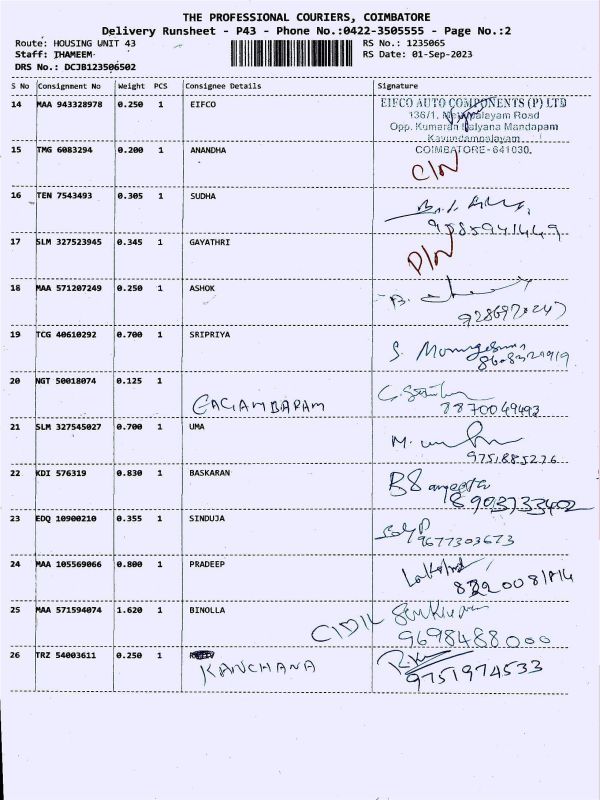 THE PROFESSIONAL COURIERS, COIMBATORE
Delivery Runsheet - P43 - Phone No.:0422-3505555 - Page No.:2
Route: HOUSING UNIT 43 RS No.: 1235065
Staff: THAMEEM RS Date: 01-Sep-2023
DRS No.: DCJB123506502
S No Consignment No Weight PCS Consignee Details Signature
14 MAA 943328978 0.250 1 EIFCO EIFCO AUTO COMPONENTS (P) LTD
136/1, Mettupalayam Road
Opp. Kumaran Kalyana Mandapam
Kavundampalayam
COIMBATORE-641030.
15 TMG 6083294 0.200 1 ANANDHA
16 TEN 7543493 0.305 1 SUDHA
9585941449
17 SLM 327523945 0.345 1 GAYATHRI
18 MAA 571207249 0.250 1 ASHOK
19 TCG 40610292 0.700 1 SRIPRIYA S.
20 NGT 50018074 0.125 1
8870049493
21 SLM 327545027 0.700 1 UMA
9751885276
22 KDI 576319 0.830 1 BASKARAN
8903733402
23 EDQ 10900210 0.355 1 SINDUJA
9677303673
24 MAA 105569066 0.800 1 PRADEEP
25 MAA 571594074 1.620 1 BINOLLA
9698488000
26 TRZ 54003611 0.250 1
KANCHANA 9751974533